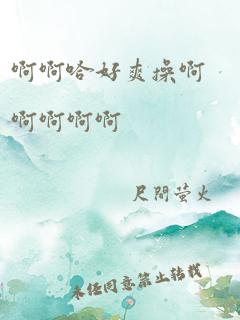 啊啊哈好爽操啊
啊啊啊啊
尺間萤火
未经同意禁止转载